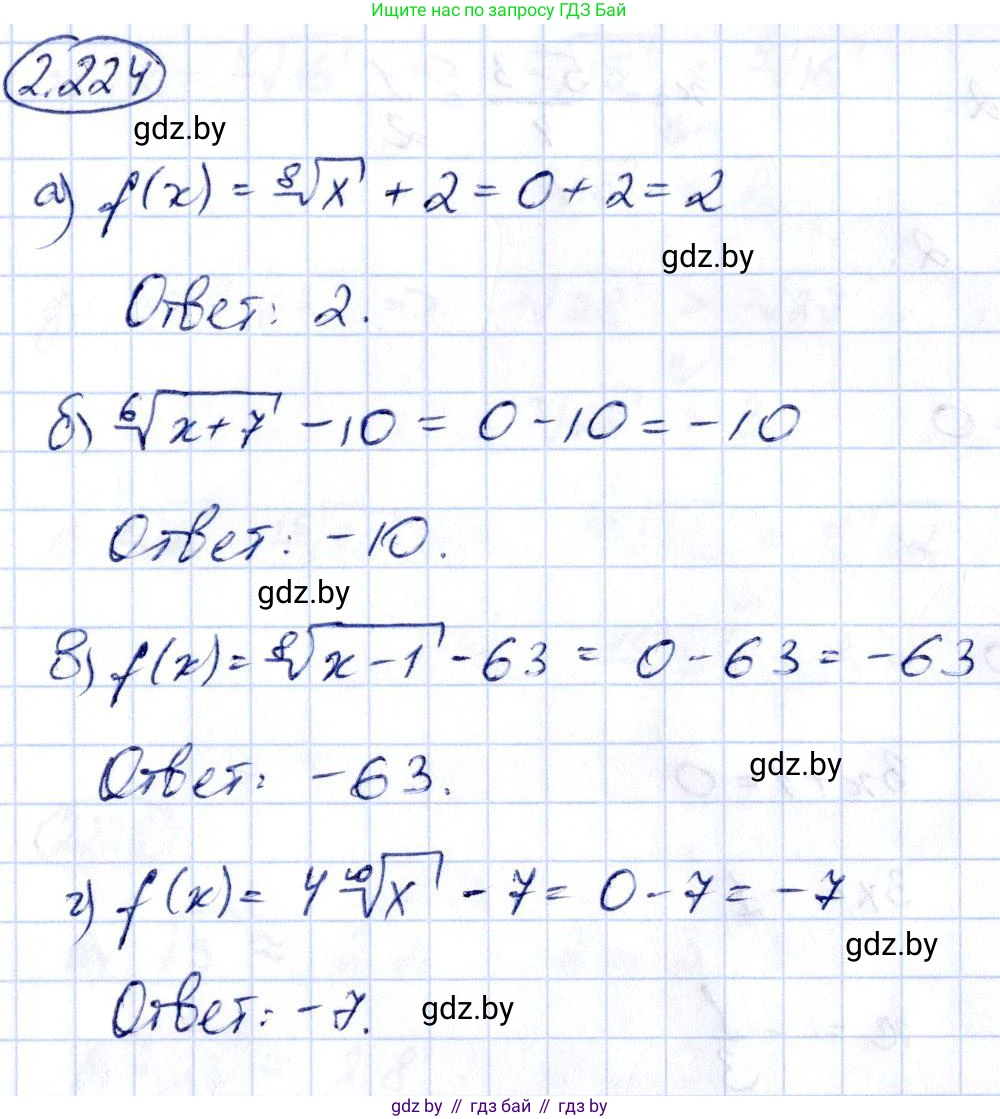 Ищите нас по запросу ГДЗ Бай
2.224
gdz.by
а) f(x) = ⁸√x + 2 = 0 + 2 = 2
gdz.by
Ответ: 2.
б) ⁶√(x+7) - 10 = 0 - 10 = -10
Ответ: -10.
gdz.by
в) f(x) = ⁸√(x-1) - 63 = 0 - 63 = -63
gdz.by
Ответ: -63.
г) f(x) = 4 ¹⁰√x - 7 = 0 - 7 = -7
gdz.by
Ответ: -7.
gdz.by
gdz.by // гдз бай // gdz.by